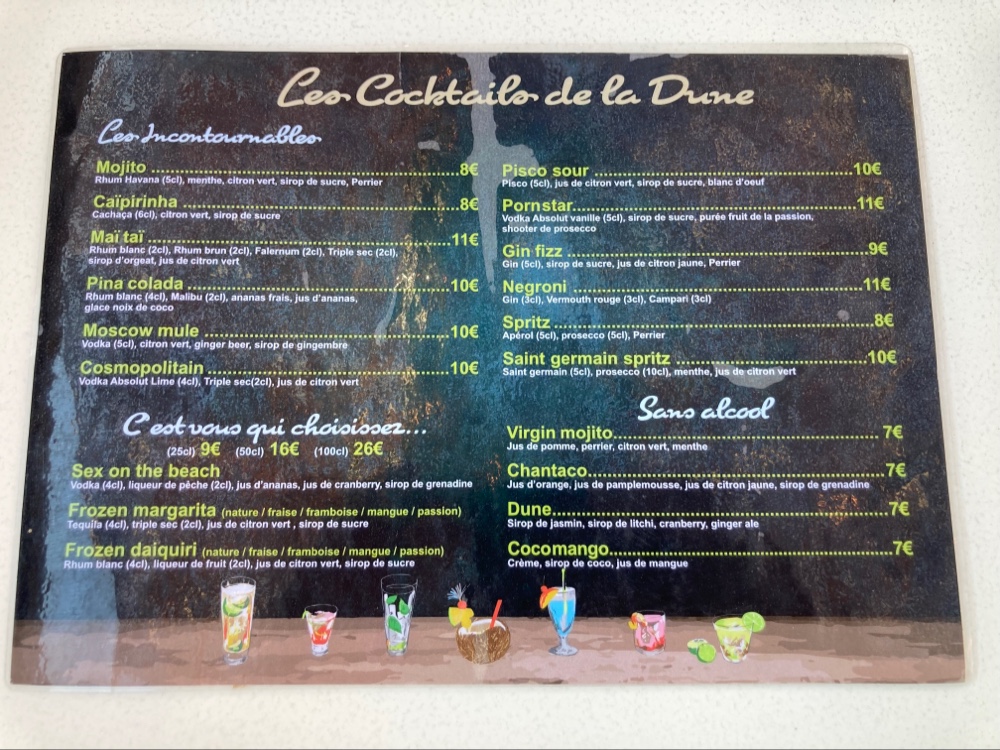 Les Cocktails de la Dune
Les Incontournables
Mojito ........ 8€
Rhum Havana (5cl), menthe, citron vert, sirop de sucre, Perrier
Caïpirinha ........ 8€
Cachaça (6cl), citron vert, sirop de sucre
Maï taï ........ 11€
Rhum blanc (2cl), Rhum brun (2cl), Falernum (2cl), Triple sec (2cl),
sirop d'orgeat, jus de citron vert
Pina colada ........ 10€
Rhum blanc (4cl), Malibu (2cl), ananas frais, jus d'ananas,
glace noix de coco
Moscow mule ........ 10€
Vodka (5cl), citron vert, ginger beer, sirop de gingembre
Cosmopolitain ........ 10€
Vodka Absolut Lime (4cl), Triple sec(2cl), jus de citron vert
C'est vous qui choisissez...
(25cl) 9€ (50cl) 16€ (100cl) 26€
Sex on the beach
Vodka (4cl), liqueur de pêche (2cl), jus d'ananas, jus de cranberry, sirop de grenadine
Frozen margarita (nature / fraise / framboise / mangue / passion)
Tequila (4cl), triple sec (2cl), jus de citron vert , sirop de sucre
Frozen daiquiri (nature / fraise / framboise / mangue / passion)
Rhum blanc (4cl), liqueur de fruit (2cl), jus de citron vert, sirop de sucre
Pisco sour ........ 10€
Pisco (5cl), jus de citron vert, sirop de sucre, blanc d'oeuf
Pornstar........ 11€
Vodka Absolut vanille (5cl), sirop de sucre, purée fruit de la passion,
shooter de prosecco
Gin fizz ........ 9€
Gin (5cl), sirop de sucre, jus de citron jaune, Perrier
Negroni ........ 11€
Gin (3cl), Vermouth rouge (3cl), Campari (3cl)
Spritz ........ 8€
Apérol (5cl), prosecco (5cl), Perrier
Saint germain spritz ........ 10€
Saint germain (5cl), prosecco (10cl), menthe, jus de citron vert
Sans alcool
Virgin mojito........ 7€
Jus de pomme, perrier, citron vert, menthe
Chantaco........ 7€
Jus d'orange, jus de pamplemousse, jus de citron jaune, sirop de grenadine
Dune........ 7€
Sirop de jasmin, sirop de litchi, cranberry, ginger ale
Cocomango........ 7€
Crème, sirop de coco, jus de mangue